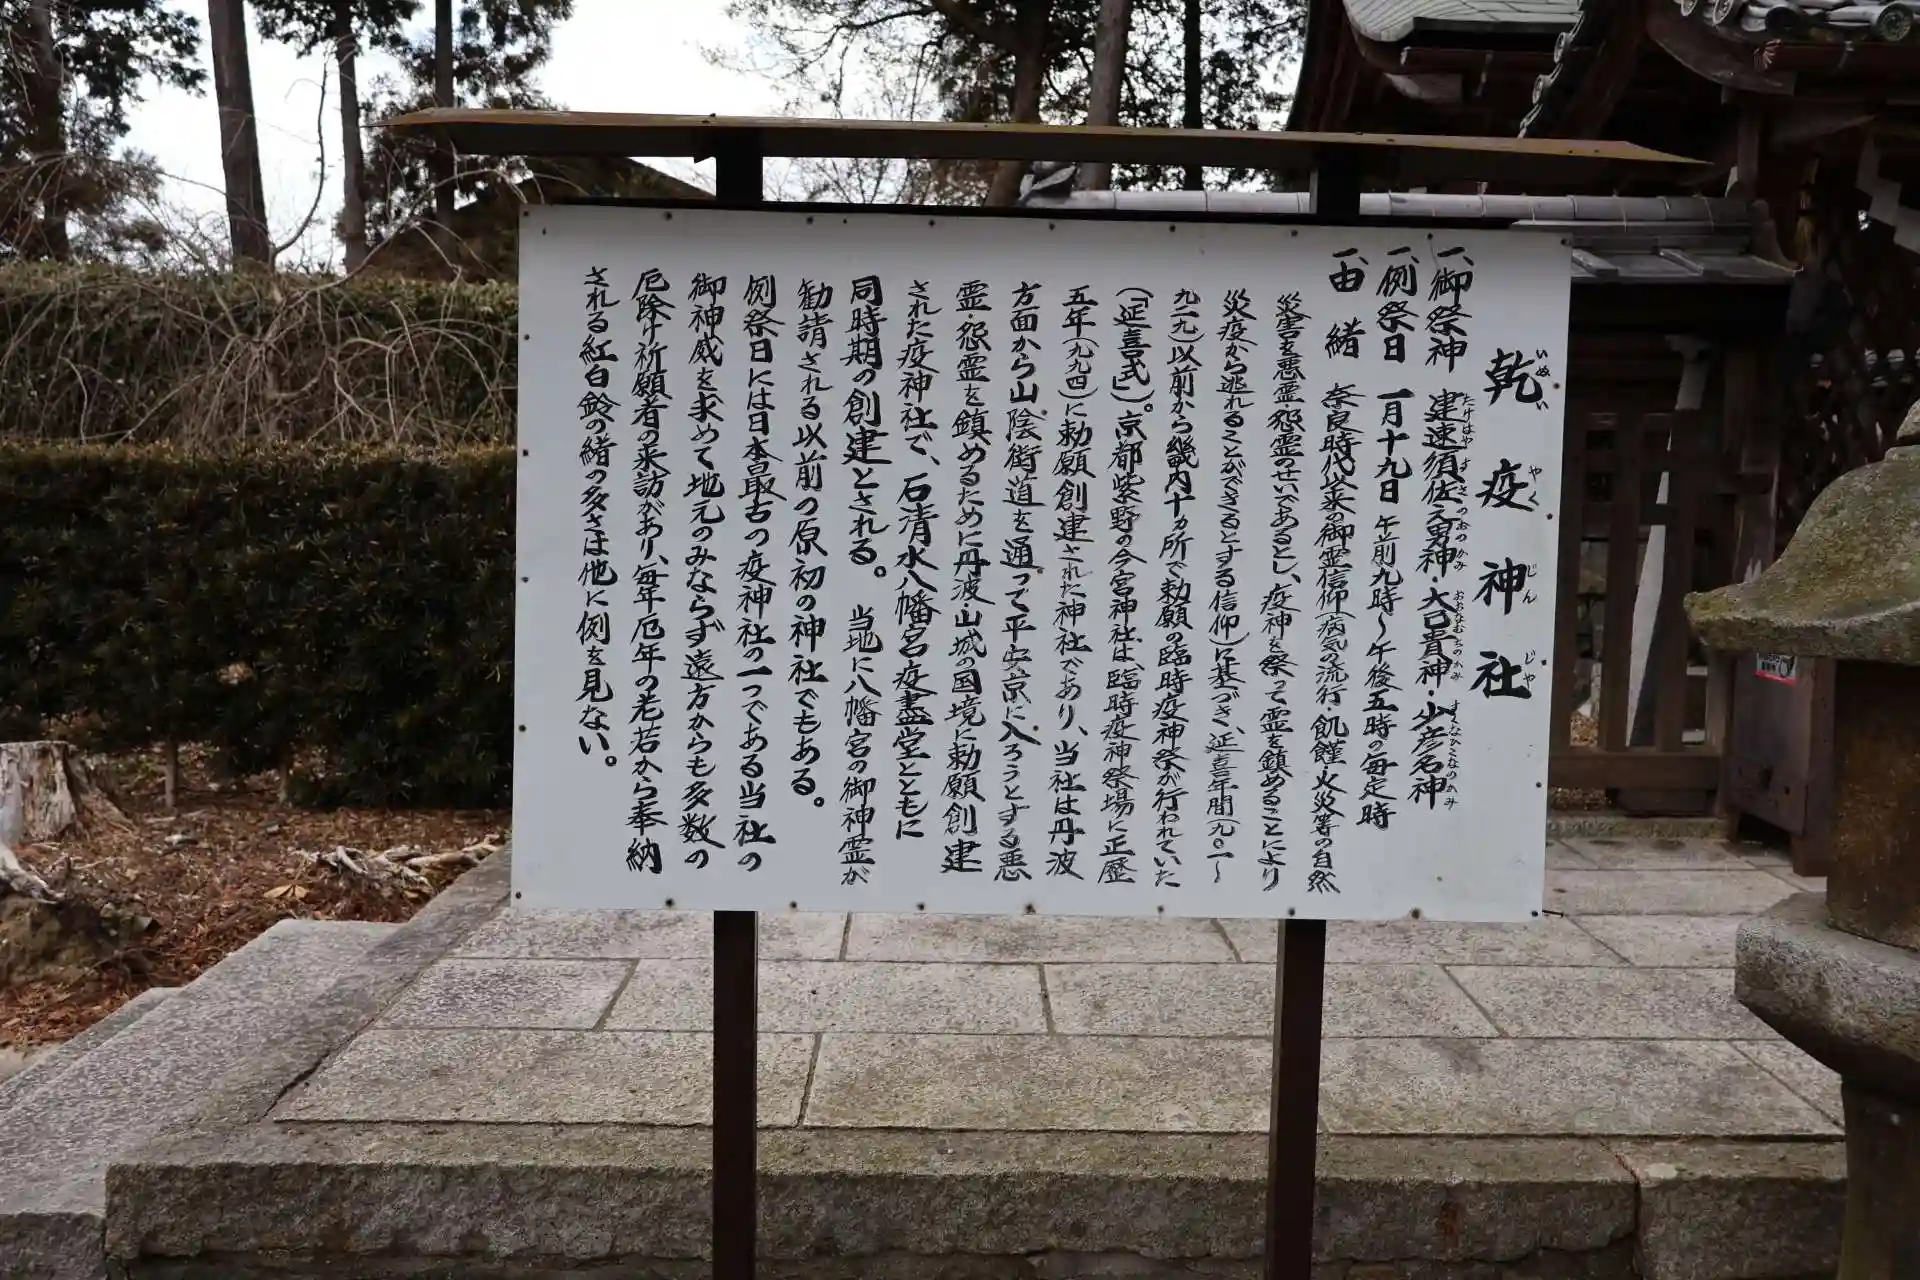 乾疫神社
一、御祭神　建速須佐之男神・大己貴神・少彦名神
一、例祭日　一月十九日　午前九時～午後五時の毎定時
一、由　緒　奈良時代以来の御霊信仰(病気の流行・飢饉・火災等の自然
災害を悪霊・怨霊のせいであるとし、疫神を祭って霊を鎮めることにより
災疫から逃れることができるとする信仰)に基づき、延喜年間(九〇一～
九二九)以前から畿内十ヵ所で勅願の臨時疫神祭が行われていた
(「延喜式」)。京都紫野の今宮神社は、臨時疫神祭場に正歴
五年(九九四)に勅願創建された神社であり、当社は丹波
方面から山陰街道を通って平安京に入ろうとする悪
霊・怨霊を鎮めるために丹波・山城の国境に勅願創建
された疫神社で、石清水八幡宮疫盡堂とともに
同時期の創建とされる。　当地に八幡宮の御神霊が
勧請される以前の原初の神社でもある。
例祭日には日本最古の疫神社の一つである当社の
御神威を求めて地元のみならず遠方からも多数の
厄除け祈願者の来訪があり、毎年厄年の老若から奉納
される紅白鈴の緒の多さは他に例を見ない。